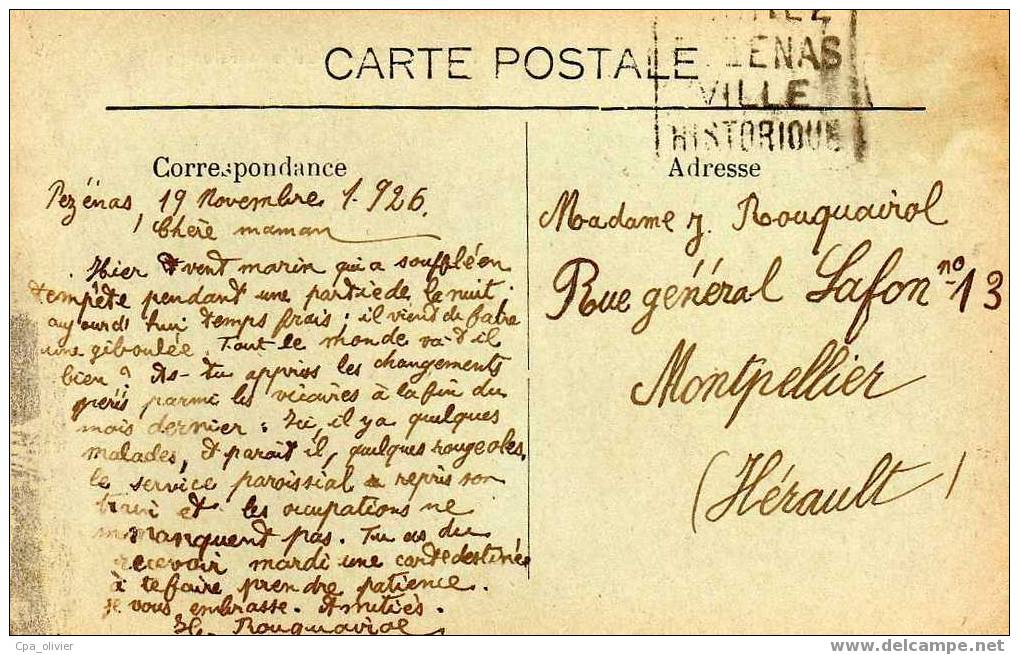 CARTE POSTALE
VILLE
HISTORIQUE
Correspondance
Pezénas 19 Novembre 1.926.
Chère maman
Hier vent marin qui a soufflé en
tempête pendant une partie de la nuit
aujourd'hui temps frais; il vient de faire
une giboulée. Tout le monde va-t-il
bien? As-tu appris les changements
parmi les vicaires à la fin du
mois dernier: Ici, il y a quelques
malades, paraît il, quelques rougeoles,
le service paroissial a repris son
train et les occupations ne
manquent pas. Tu as du
recevoir mardi une carte destinée
à te faire prendre patience.
Je vous embrasse. Amitiés.
H. Rouquairol
Adresse
Madame J. Rouquairol
Rue général Lafon nº 13
Montpellier
(Hérault)
Cpa_olivier
www.delcampe.net